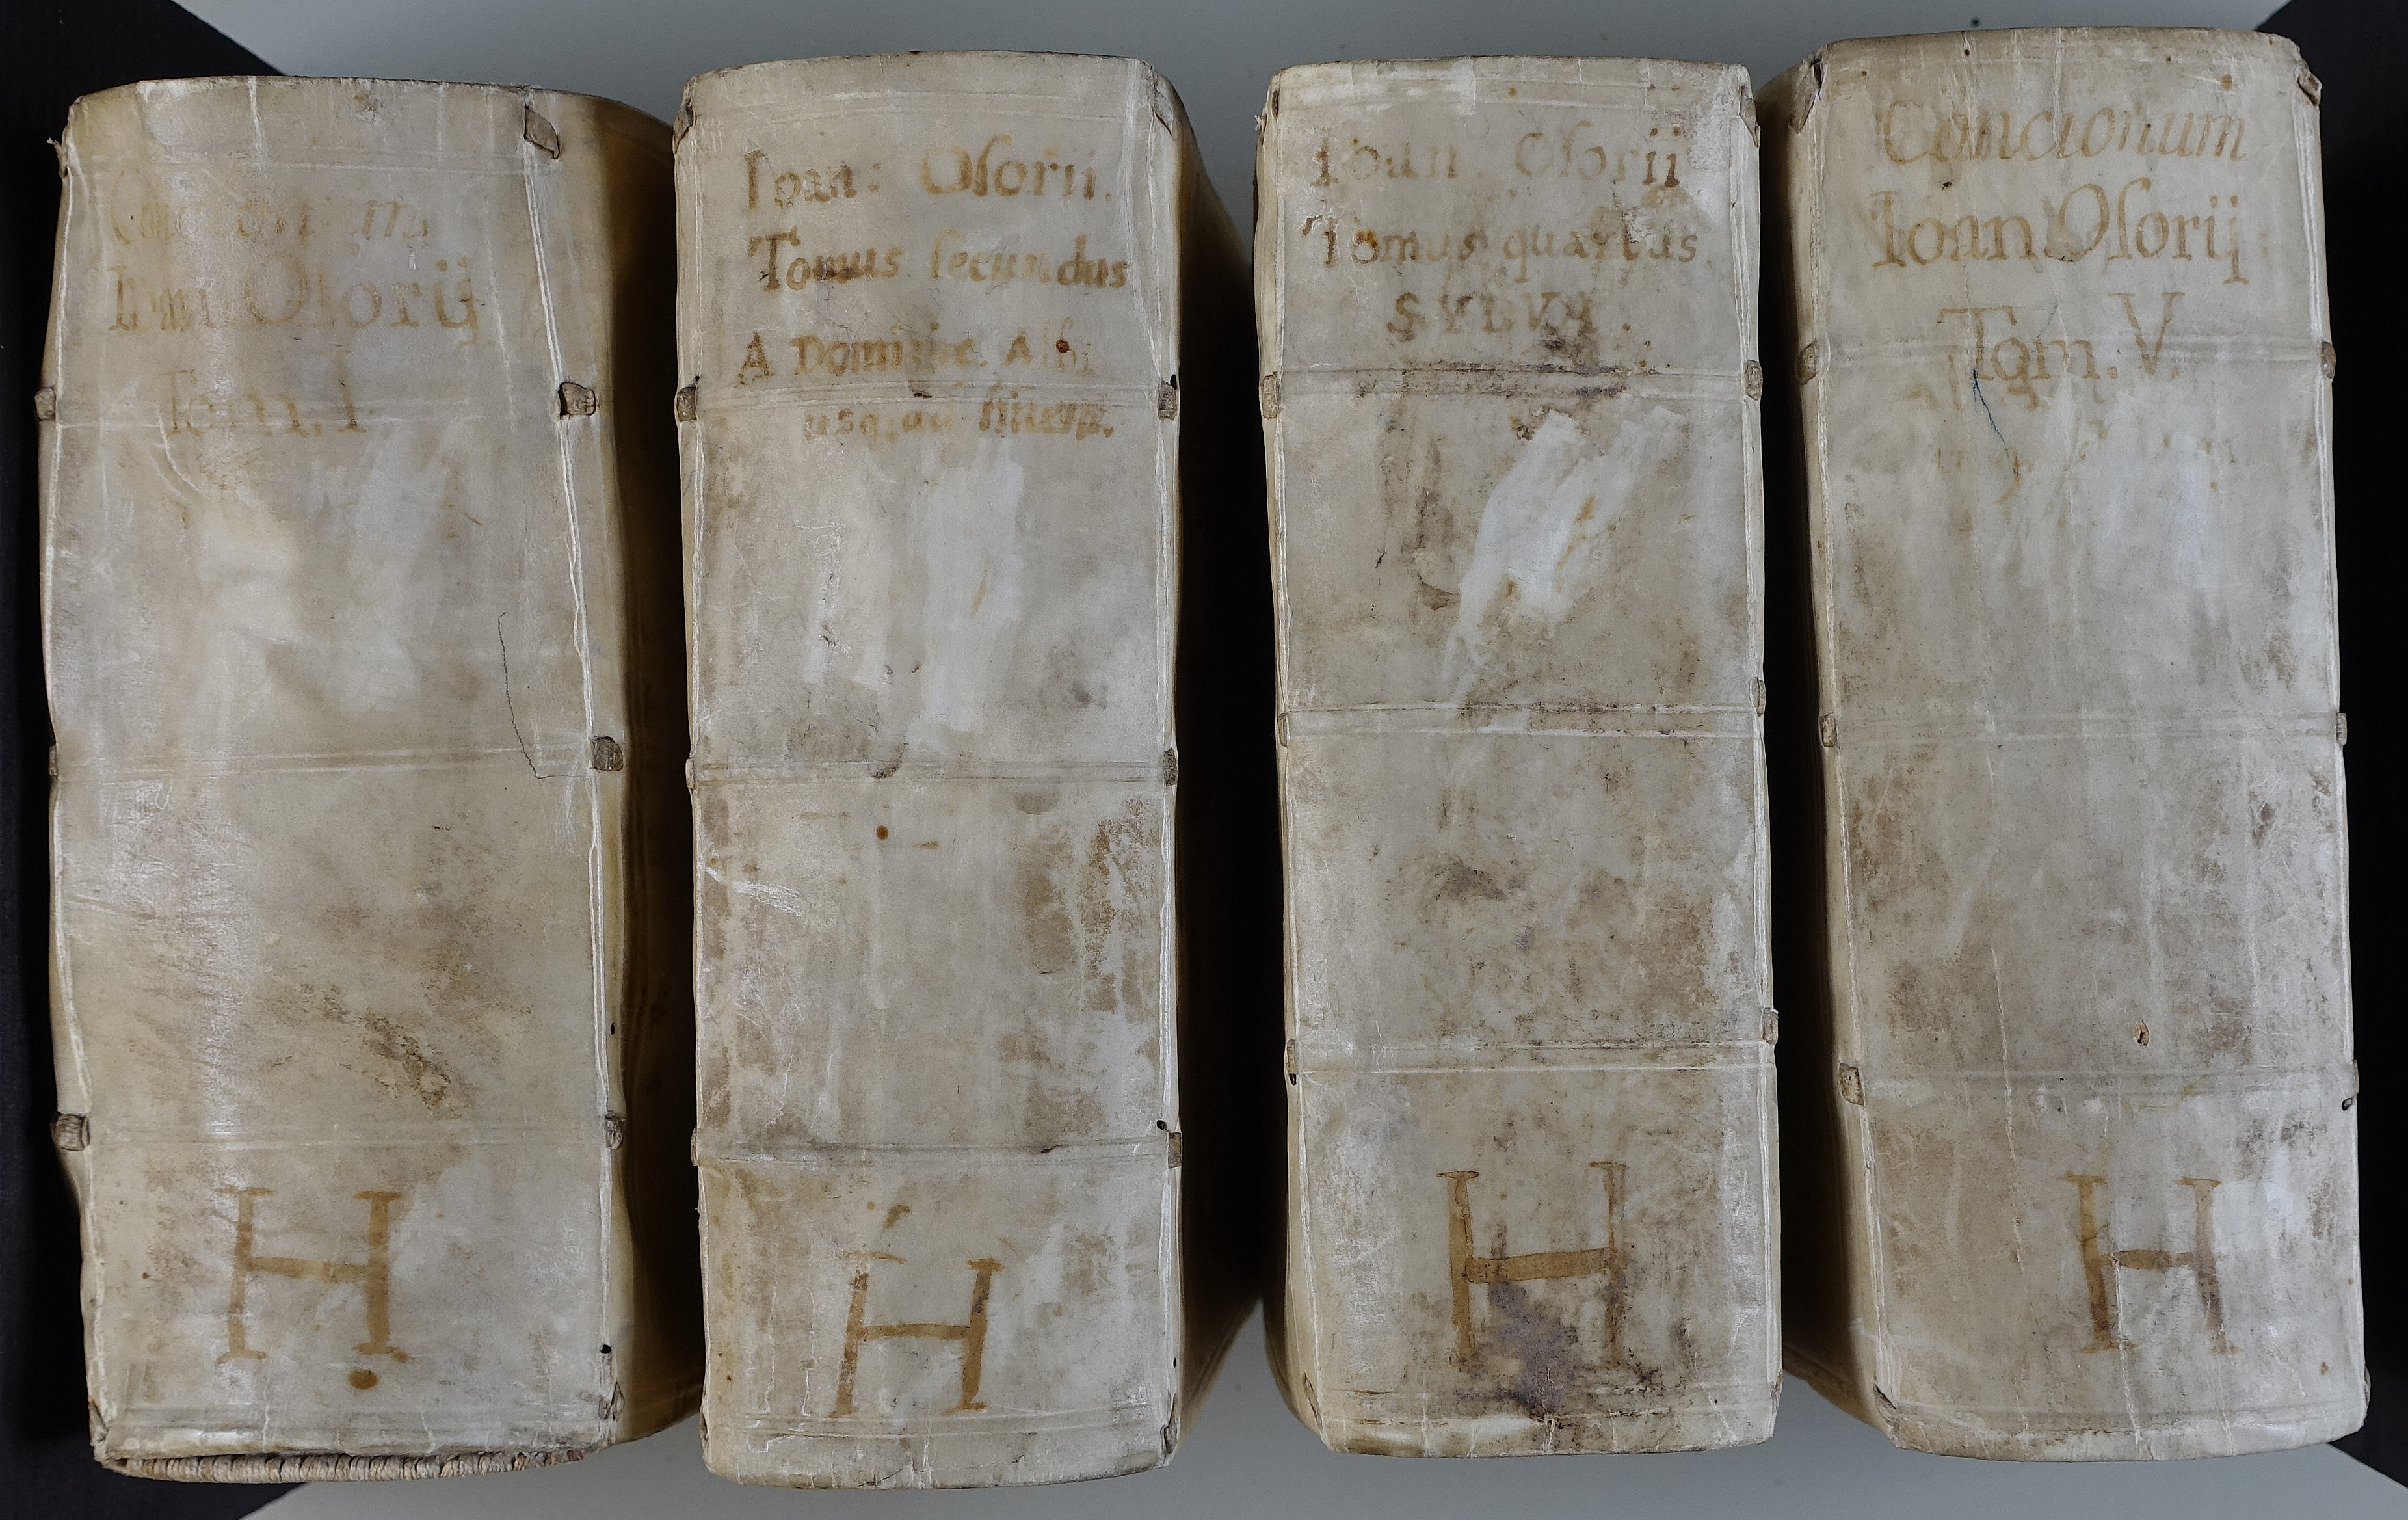 Concionum
Ioan Osorij
Tom. I.
H
Ioan: Osorii.
Tomus secundus
A Dominic. Albis
usq. ad
H
Ioan. Osorii
Tomus quartus
SYLVA.
H
Concionum
Ioan Osorij
Tom. V.
H